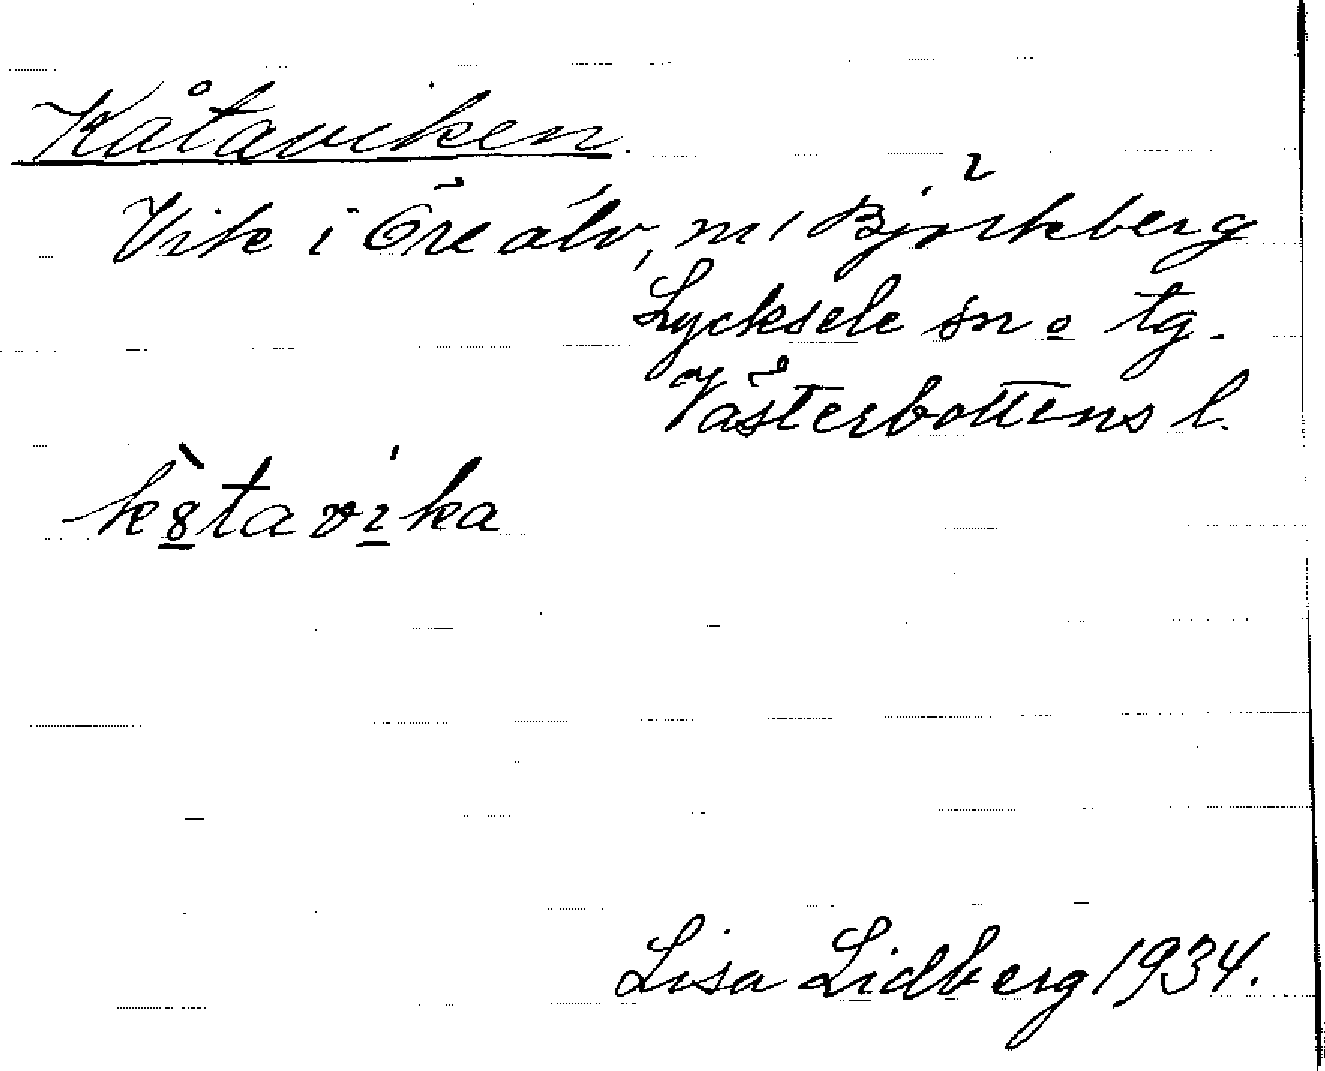 Kåtaviken.
Vik i Öre älv, m/ Björkberg
Lycksele sn o tg.
Västerbottens l.
k8̲̀tavı̲́ka
Lisa Lidberg 1934.